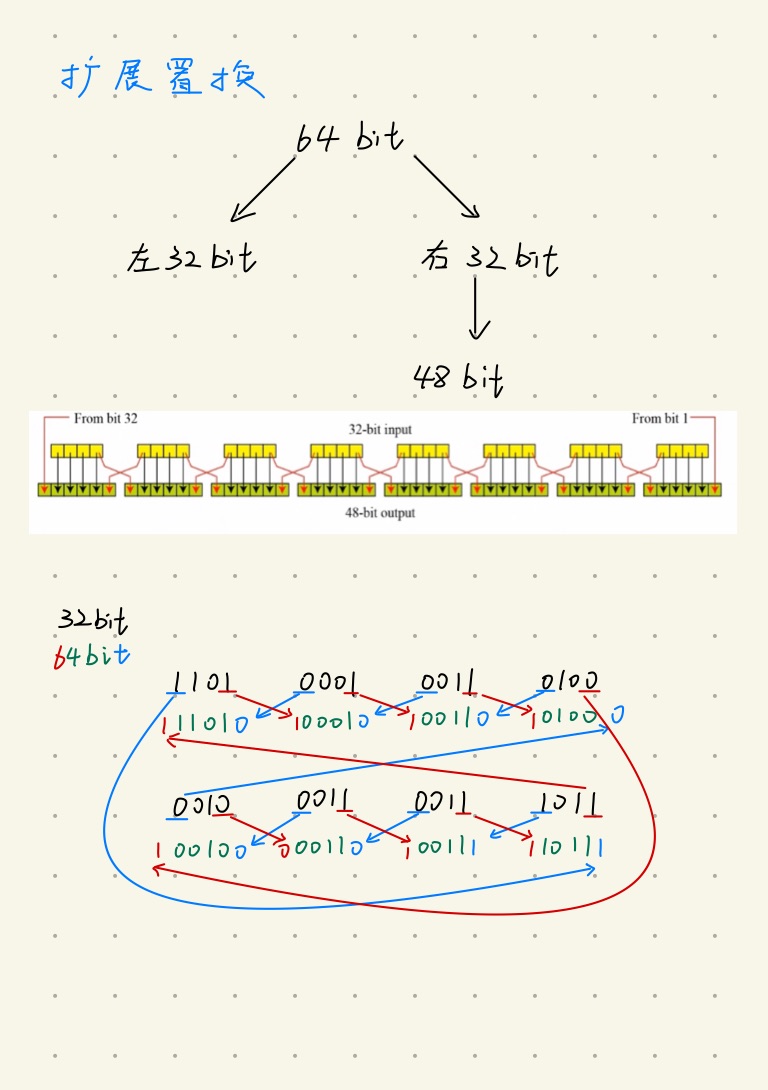 扩展置换
64 bit
左 32 bit 右 32 bit
48 bit
From bit 32 32-bit input From bit 1
48-bit output
32bit
64bit
1101 0001 0011 0100
111010 100010 100110 101000
0010 0011 0011 1011
100100 000110 100111 110111